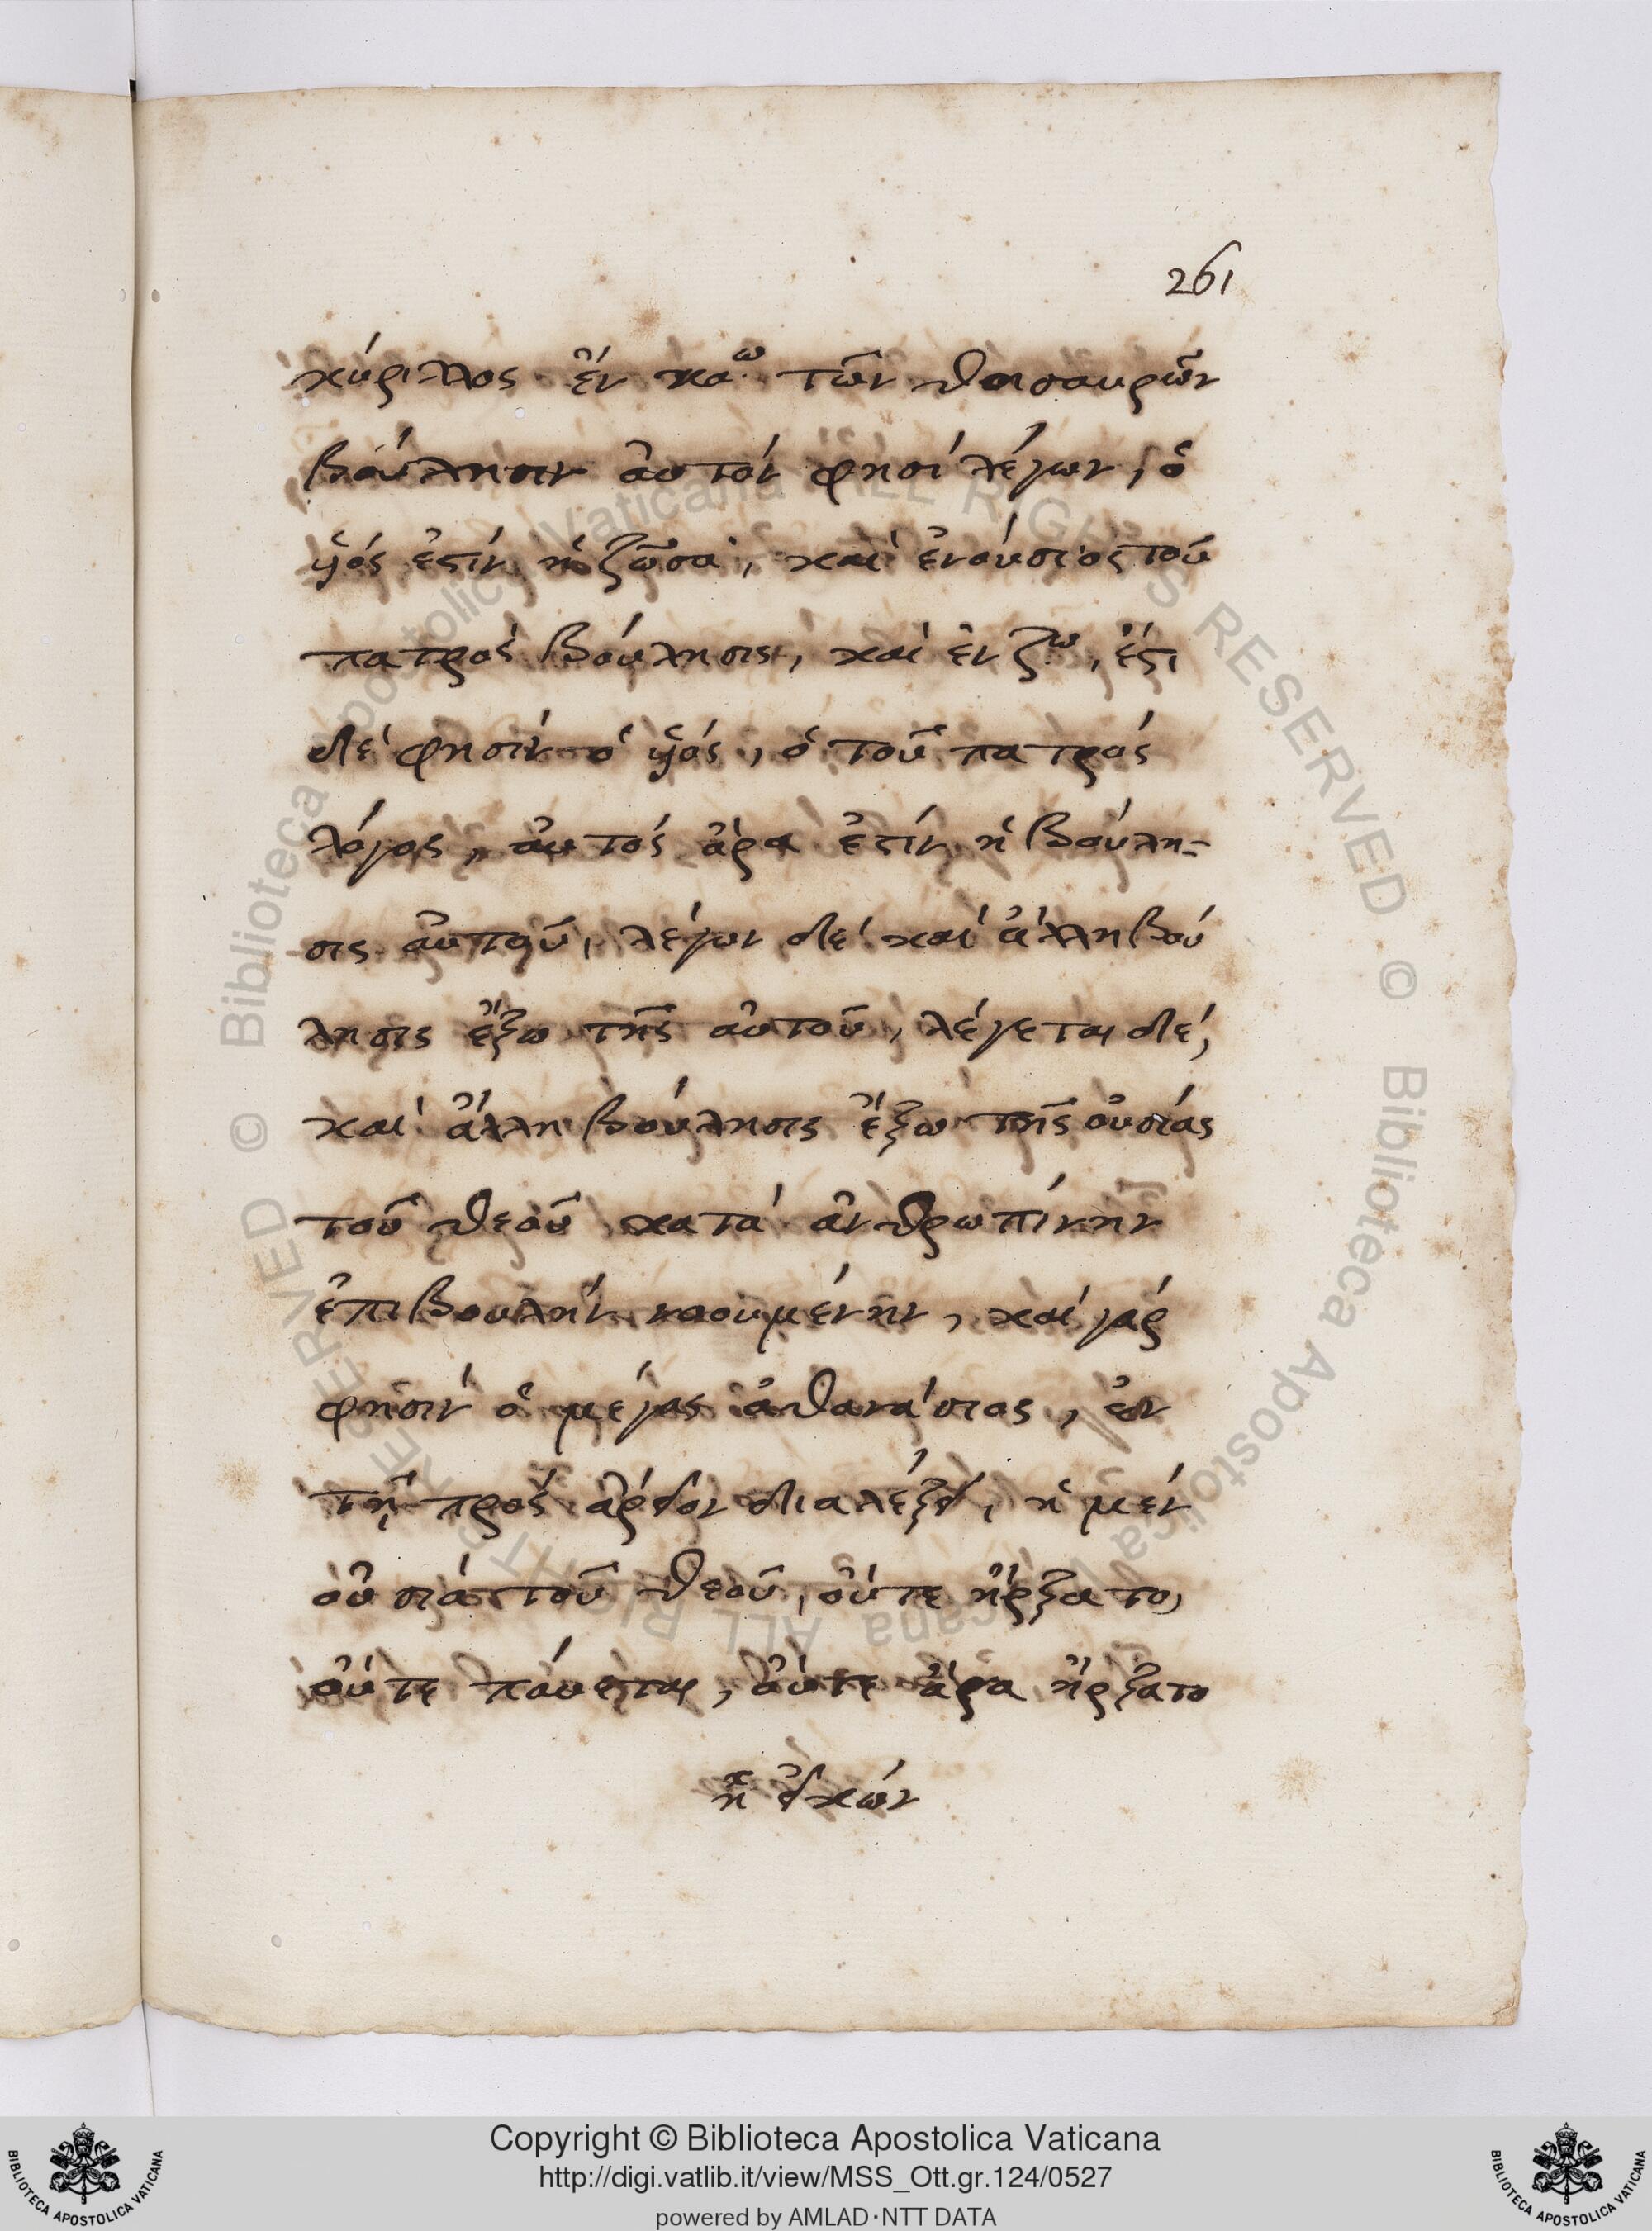 261
κύριλλος ἐν κα^ω. τῶν θησαυρῶν
βούλησιν αὐτὸν φησὶ λέγων, ὁ
υἱός ἐστὶν ἡ ζῶσα, καὶ ἐνούσιος τοῦ
πατρὸς βούλησις, καὶ ἐν ζ^ω, ἔστι
δέ φησὶν ὁ υἱός, ὁ τοῦ πατρὸς
λόγος, αὐτὸς ἄρα ἐστὶν ἡ βούλη-
σις αὐτοῦ, λέγων δέ καὶ ἄλλη βού
λησις ἔξω τῆς αὐτοῦ, λέγεται δέ,
καὶ ἄλλη βούλησις ἔξω τῆς οὐσίας
τοῦ θεοῦ κατὰ ἀνθρωπίνην
ἐπιβουλὴν νοουμένην, καὶ γὰρ
φησὶν ὁ μέγας ἀθανάσιος, ἐν
τῇ πρὸς ἄρειον διαλέξει, ἡ μὲν
οὐσία τοῦ θεοῦ, οὔτε ἤρξατο,
οὔτε παύεται, οὔτε ἄρα ἤρξατο
ἡ εἰκών
Copyright © Biblioteca Apostolica Vaticana
http://digi.vatlib.it/view/MSS_Ott.gr.124/0527
powered by AMLAD·NTT DATA
BIBLIOTECA APOSTOLICA VATICANA
BIBLIOTECA APOSTOLICA VATICANA
© Biblioteca Apostolica Vaticana ALL RIGHTS RESERVED
© Biblioteca Apostolica Vaticana ALL RIGHTS RESERVED